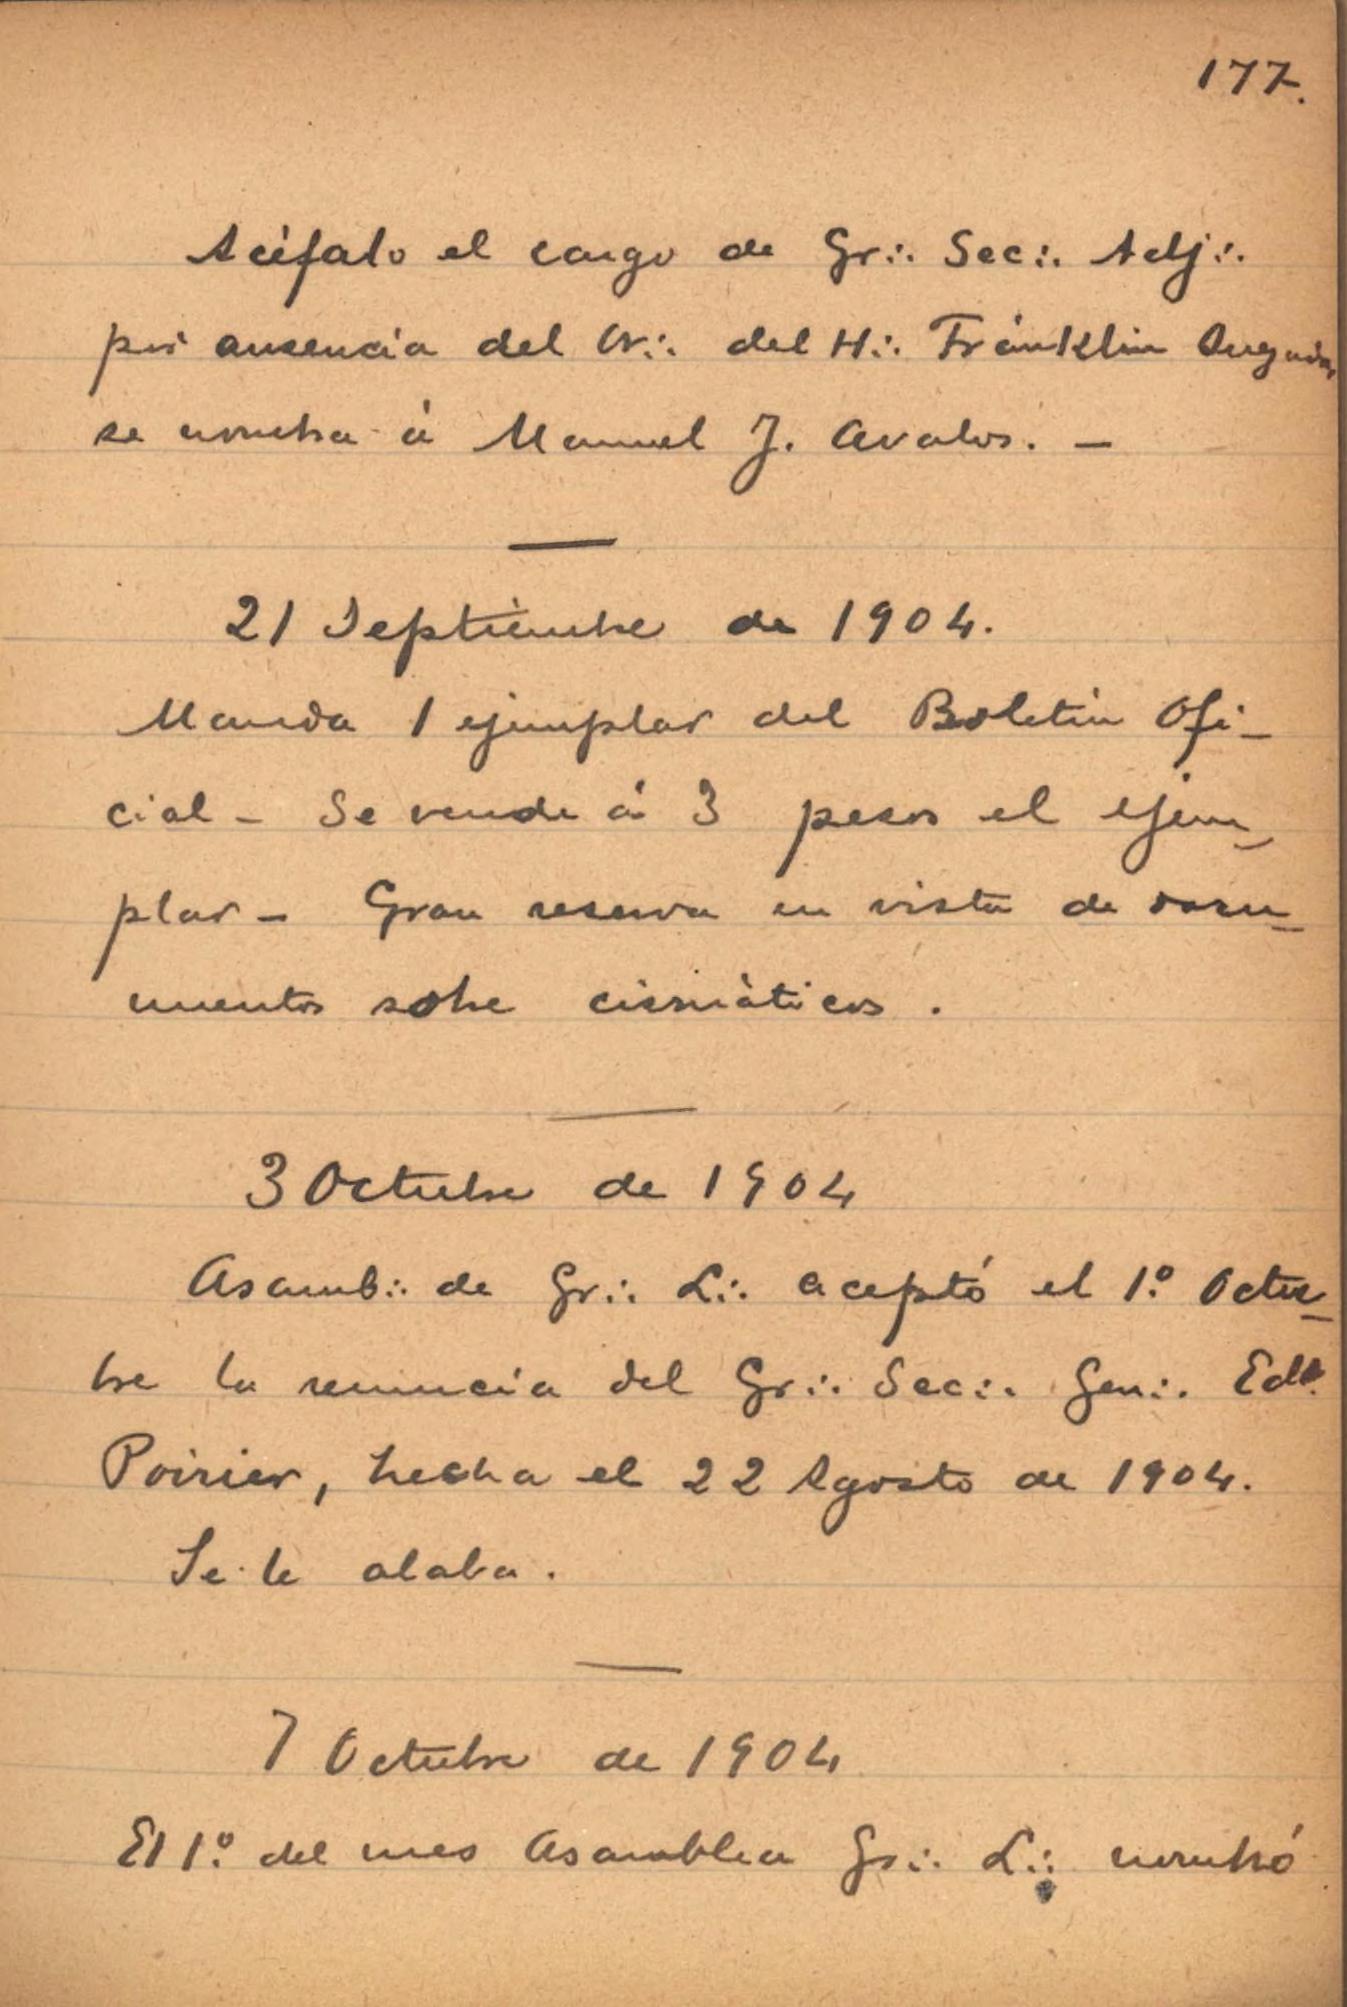 177.
Acéfalo el cargo de Gr∴ Sec∴ Adj∴
por ausencia del Or∴ del H∴ Fránklin
se nombra á Manuel J. Avalos. —
21 Septiembre de 1904.
Manda 1 ejemplar del Boletin Ofi-
cial - Se vende á 3 pesos el ejem-
plar - Gran reserva en vista de docu-
mentos sobre cismáticos.
3 Octubre de 1904
Asamb∴ de Gr∴ L∴ aceptó el 1º Octu-
bre la renuncia del Gr∴ Sec∴ Gen∴ Edº
Poirier, hecha el 22 Agosto de 1904.
Se le alaba.
7 Octubre de 1904
El 1º del mes Asamblea Gr∴ L∴ nombró